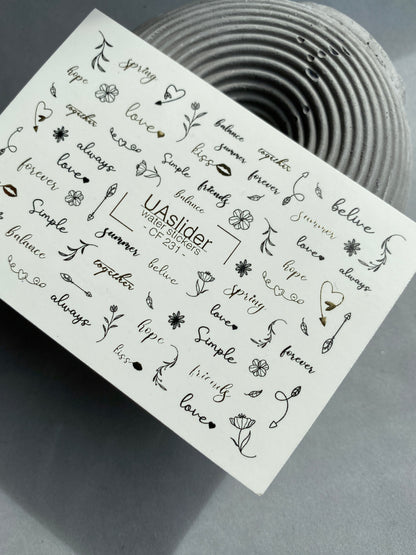 spring
hope
love
balance
together
together
summer
always
kiss
Simple
forever
forever
friends
love
balance
summer
belive
Simple
UAslider
water stickers
· CF 231
love
always
balance
summer
hope
together
belive
spring
always
love
hope
Simple
forever
kiss
friends
love